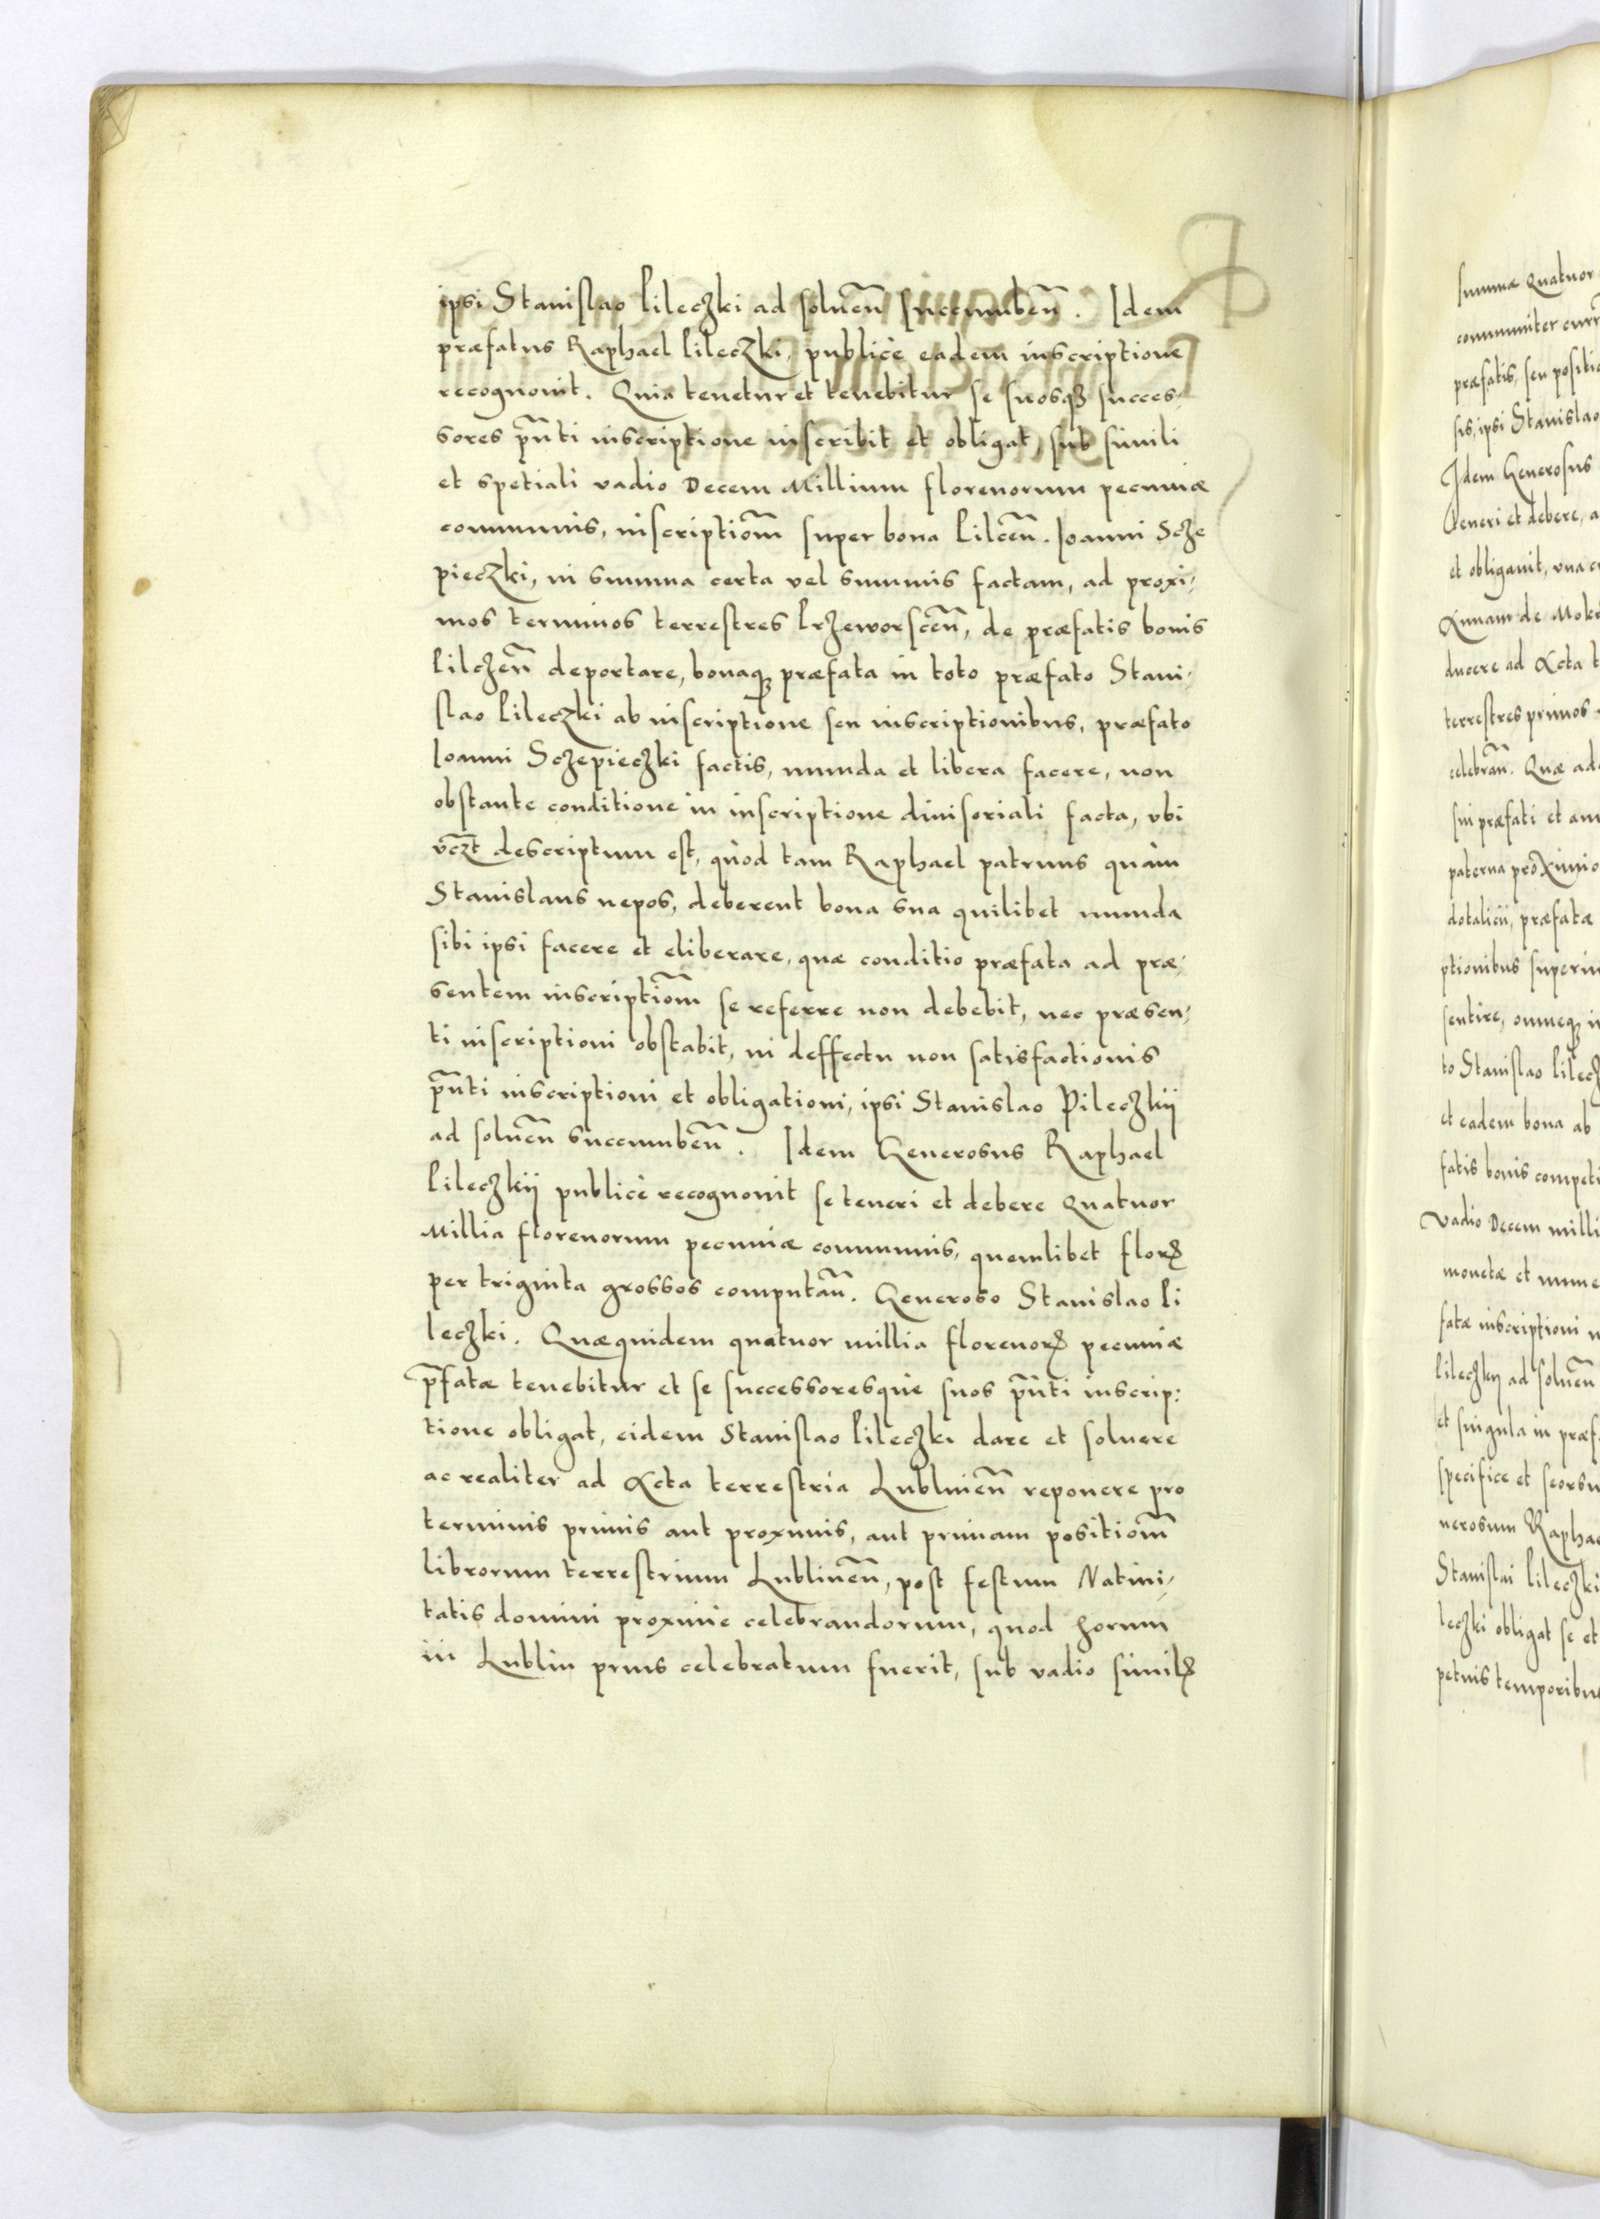 ipsi Stanislao Pileczki ad soluen̄ succumben̄. Idem
præfatus Raphael Pileczki, publicè eadem inscriptione
recognouit. Quia tenetur et tenebitur se suosqꝫ succes,
sores pn̄ti inscriptione inscribit et obligat, sub simili
et spetiali vadio Decem Millium florenorum pecuniæ
communis, inscriptiom̄ super bona Pilcen̄. Ioanni Scze
pieczki, in summa certa vel summis factam, ad proxi,
mos terminos terrestres Przeworscen̄, de præfatis bonis
Pilczen̄ deportare, bonaqꝫ præfata in toto præfato Stani,
slao Pileczki ab inscriptione seu inscriptionibus, præfato
Ioanni Sczepieczki factis, munda et libera facere, non
obstante conditione in inscriptione diuisoriali facta, vbi
vcz̄t descriptum est, quòd tam Raphael patruus quàm
Stanislaus nepos, deberent bona sua quilibet munda
sibi ipsi facere et eliberare, quæ conditio præfata ad præ,
sentem inscriptiom̄ se referre non debebit, nec præsen,
ti inscriptioni obstabit, in deffectu non satisfactionis
pn̄ti inscriptioni et obligationi, ipsi Stanislao Pileczkij
ad soluen̄ succumben̄. Idem Generosus Raphael
Pileczkij publicè recognouit se teneri et debere Quatuor
Millia florenorum pecuniæ communis, quemlibet florꝫ
per triginta grossos computan̄. Generoso Stanislao Pi
leczki. Quæquidem quatuor millia florenorꝫ pecuniæ
p̄fatæ tenebitur et se successoresque suos pn̄ti inscrip:
tione obligat, eidem Stanislao Pileczki dare et soluere
ac realiter ad Acta terrestria Lublinen̄ reponere pro
terminis primis aut proximis, aut primam positiom̄
librorum terrestrium Lublinen̄, post festum Natiui,
tatis domini proximè celebrandorum, quod horum
in Lublin prius celebratum fuerit, sub vadio similꝫ
summæ Quatuor
communiter curr
præfatis, seu positio
sis, ipsi Stanislao
Idem Generosus
teneri et debere, a
et obligauit, vna c
Annam de Mok
ducere ad Acta t
terrestres primos
celebran̄. Quæ ad
sui præfati et am
paterna proximio
dotalicij, præfatæ
ptionibus superin
sentire, omneqꝫ i
to Stanislao Pilecz
et eadem bona ab
fatis bonis competi
Vadio Decem milli
monetæ et nume
fatæ inscriptioni n
Pileczkij ad soluen̄
et singula in præf
specifice et seorsu
nerosum Rapha
Stanislai Pileczki
leczki obligat se et
petuis temporibus